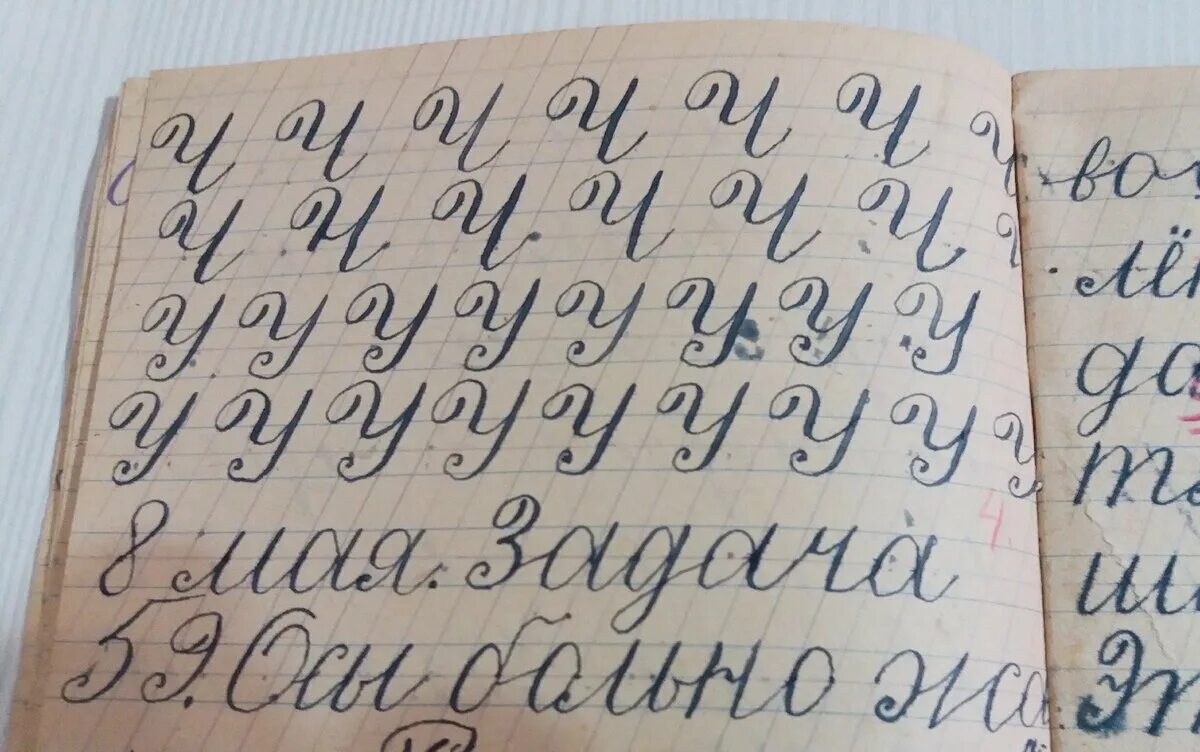 Ч Ч Ч Ч Ч Ч Ч
Ч Ч Ч Ч Ч Ч Ч
У У У У У У У У
У У У У У У У У У
8 мая. Задача
4.
59. Осы больно жа
во
лё
да
то
ш
Эт